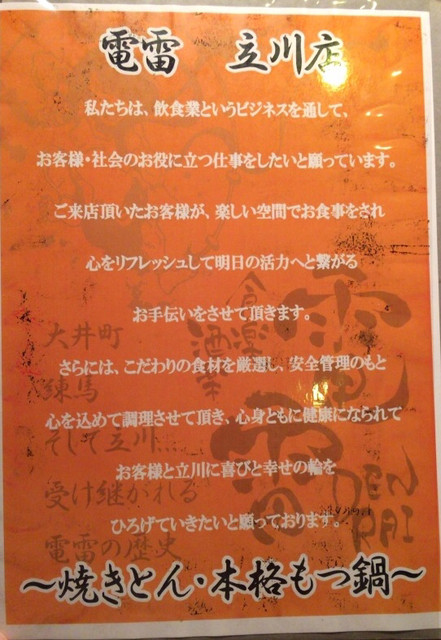 電雷 立川店
私たちは、飲食業というビジネスを通して、
お客様・社会のお役に立つ仕事をしたいと願っています。
ご来店頂いたお客様が、楽しい空間でお食事をされ
心をリフレッシュして明日の活力へと繋がる
お手伝いをさせて頂きます。
さらには、こだわりの食材を厳選し、安全管理のもと
心を込めて調理させて頂き、心身ともに健康になられて
お客様と立川に喜びと幸せの輪を
ひろげていきたいと願っております。
大井町
練馬
そして立川…
受け継がれる
電雷の歴史
酒
電雷
DEN
RAI
〜焼きとん・本格もつ鍋〜